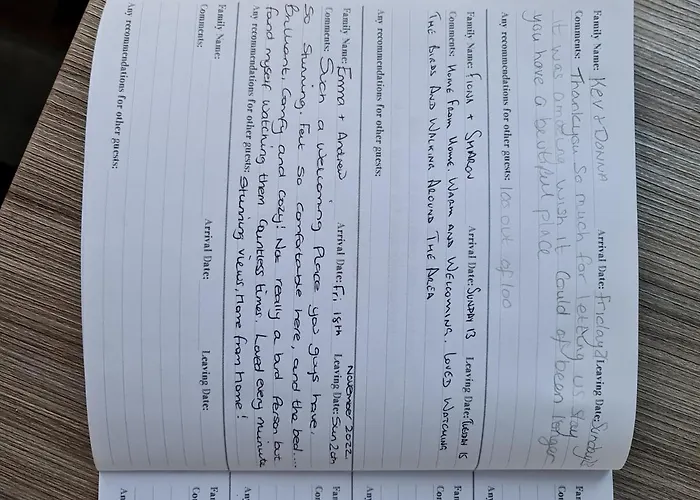 Family Name: Kev & Donna Arrival Date: Friday Leaving Date: Sunday
Comments: Thankyou so much for letting us stay
it was amazing wish it could of been longer
you have a beutifull place
Any recommendations for other guests: 100 out of 100
Family Name: Fiona & Sharon Arrival Date: Sunday 13 Leaving Date: Tuesday 15
Comments: Home from Home. Warm and Welcoming. Loved Watching
The Birds And Walking Around The Area
Any recommendations for other guests:
November 2022
Family Name: Emma + Andrew Arrival Date: Fri 18th Leaving Date: Sun 20th
Comments: Such a welcoming place you guys have,
so stunning. Felt so comfortable here, and the bed...
Brilliant. Comfy and cozy! Not really a bird person but
found myself watching them countless times. Loved every minute
Any recommendations for other guests: Stunning views, Home from Home!
Family Name: Arrival Date: Leaving Date:
Comments:
Any recommendations for other guests: